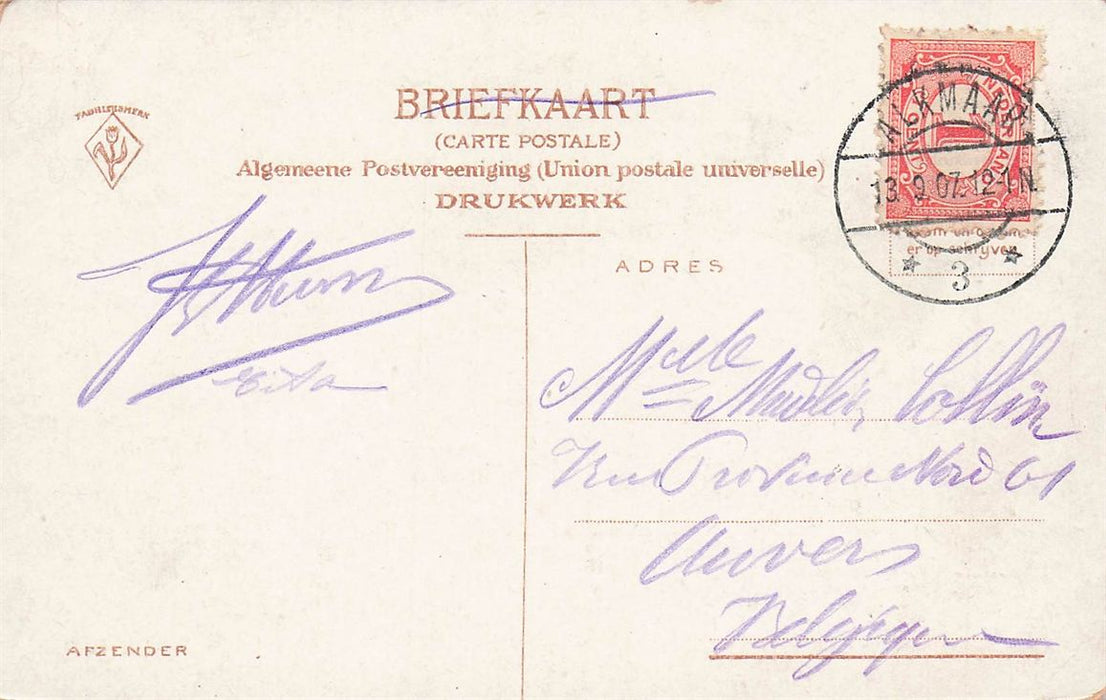 FABRIEKSMERK
BRIEFKAART
(CARTE POSTALE)
Algemeene Postvereeniging (Union postale universelle)
DRUKWERK
ALKMAAR
13. 9. 07. 12-1 N
3
1
er op schrijven
ADRES
Melle Collin
Rue Province Nord 61
Anvers
Belgique
AFZENDER